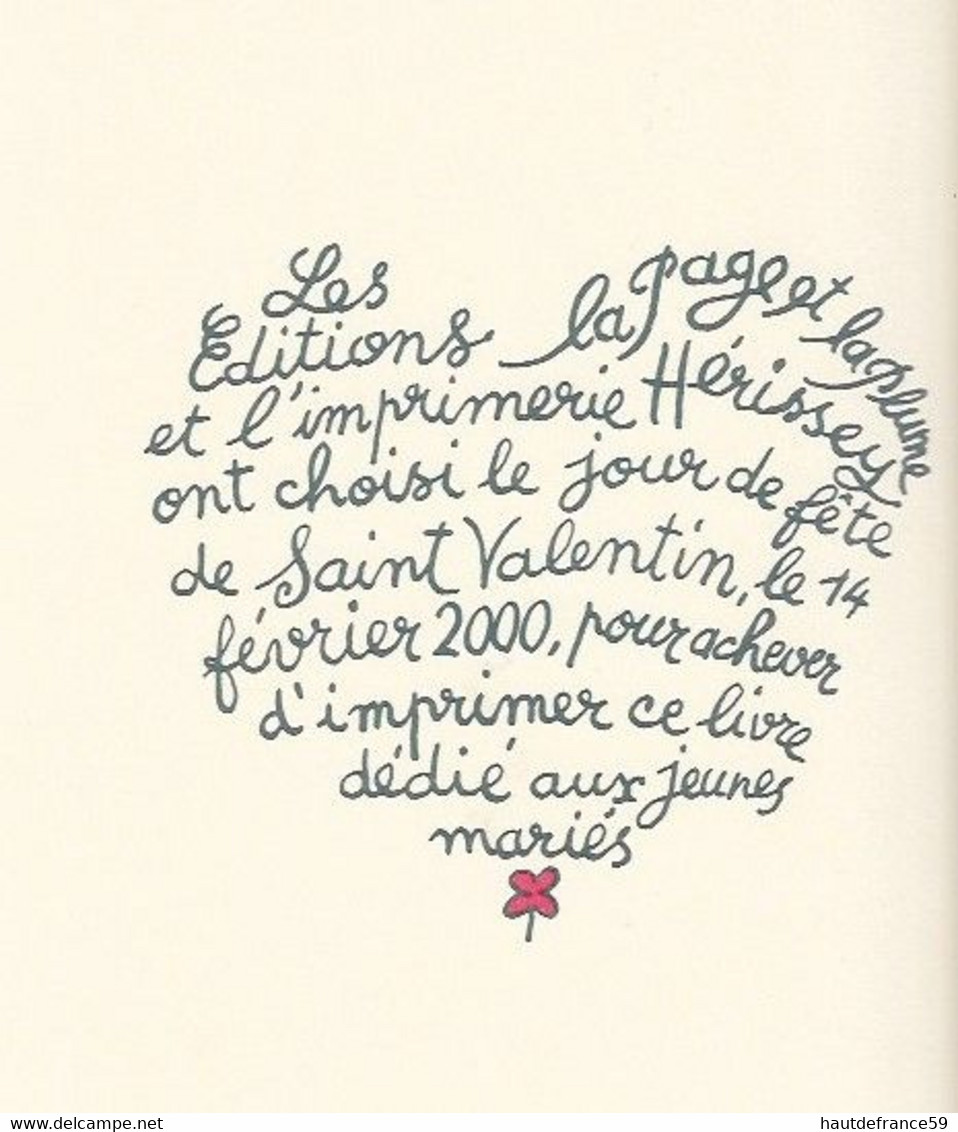 Les
Editions la Page et la plume
et l'imprimerie Hérissey
ont choisi le jour de fête
de Saint Valentin, le 14
février 2000, pour achever
d'imprimer ce livre
dédié aux jeunes
mariés
www.delcampe.net
hautdefrance59